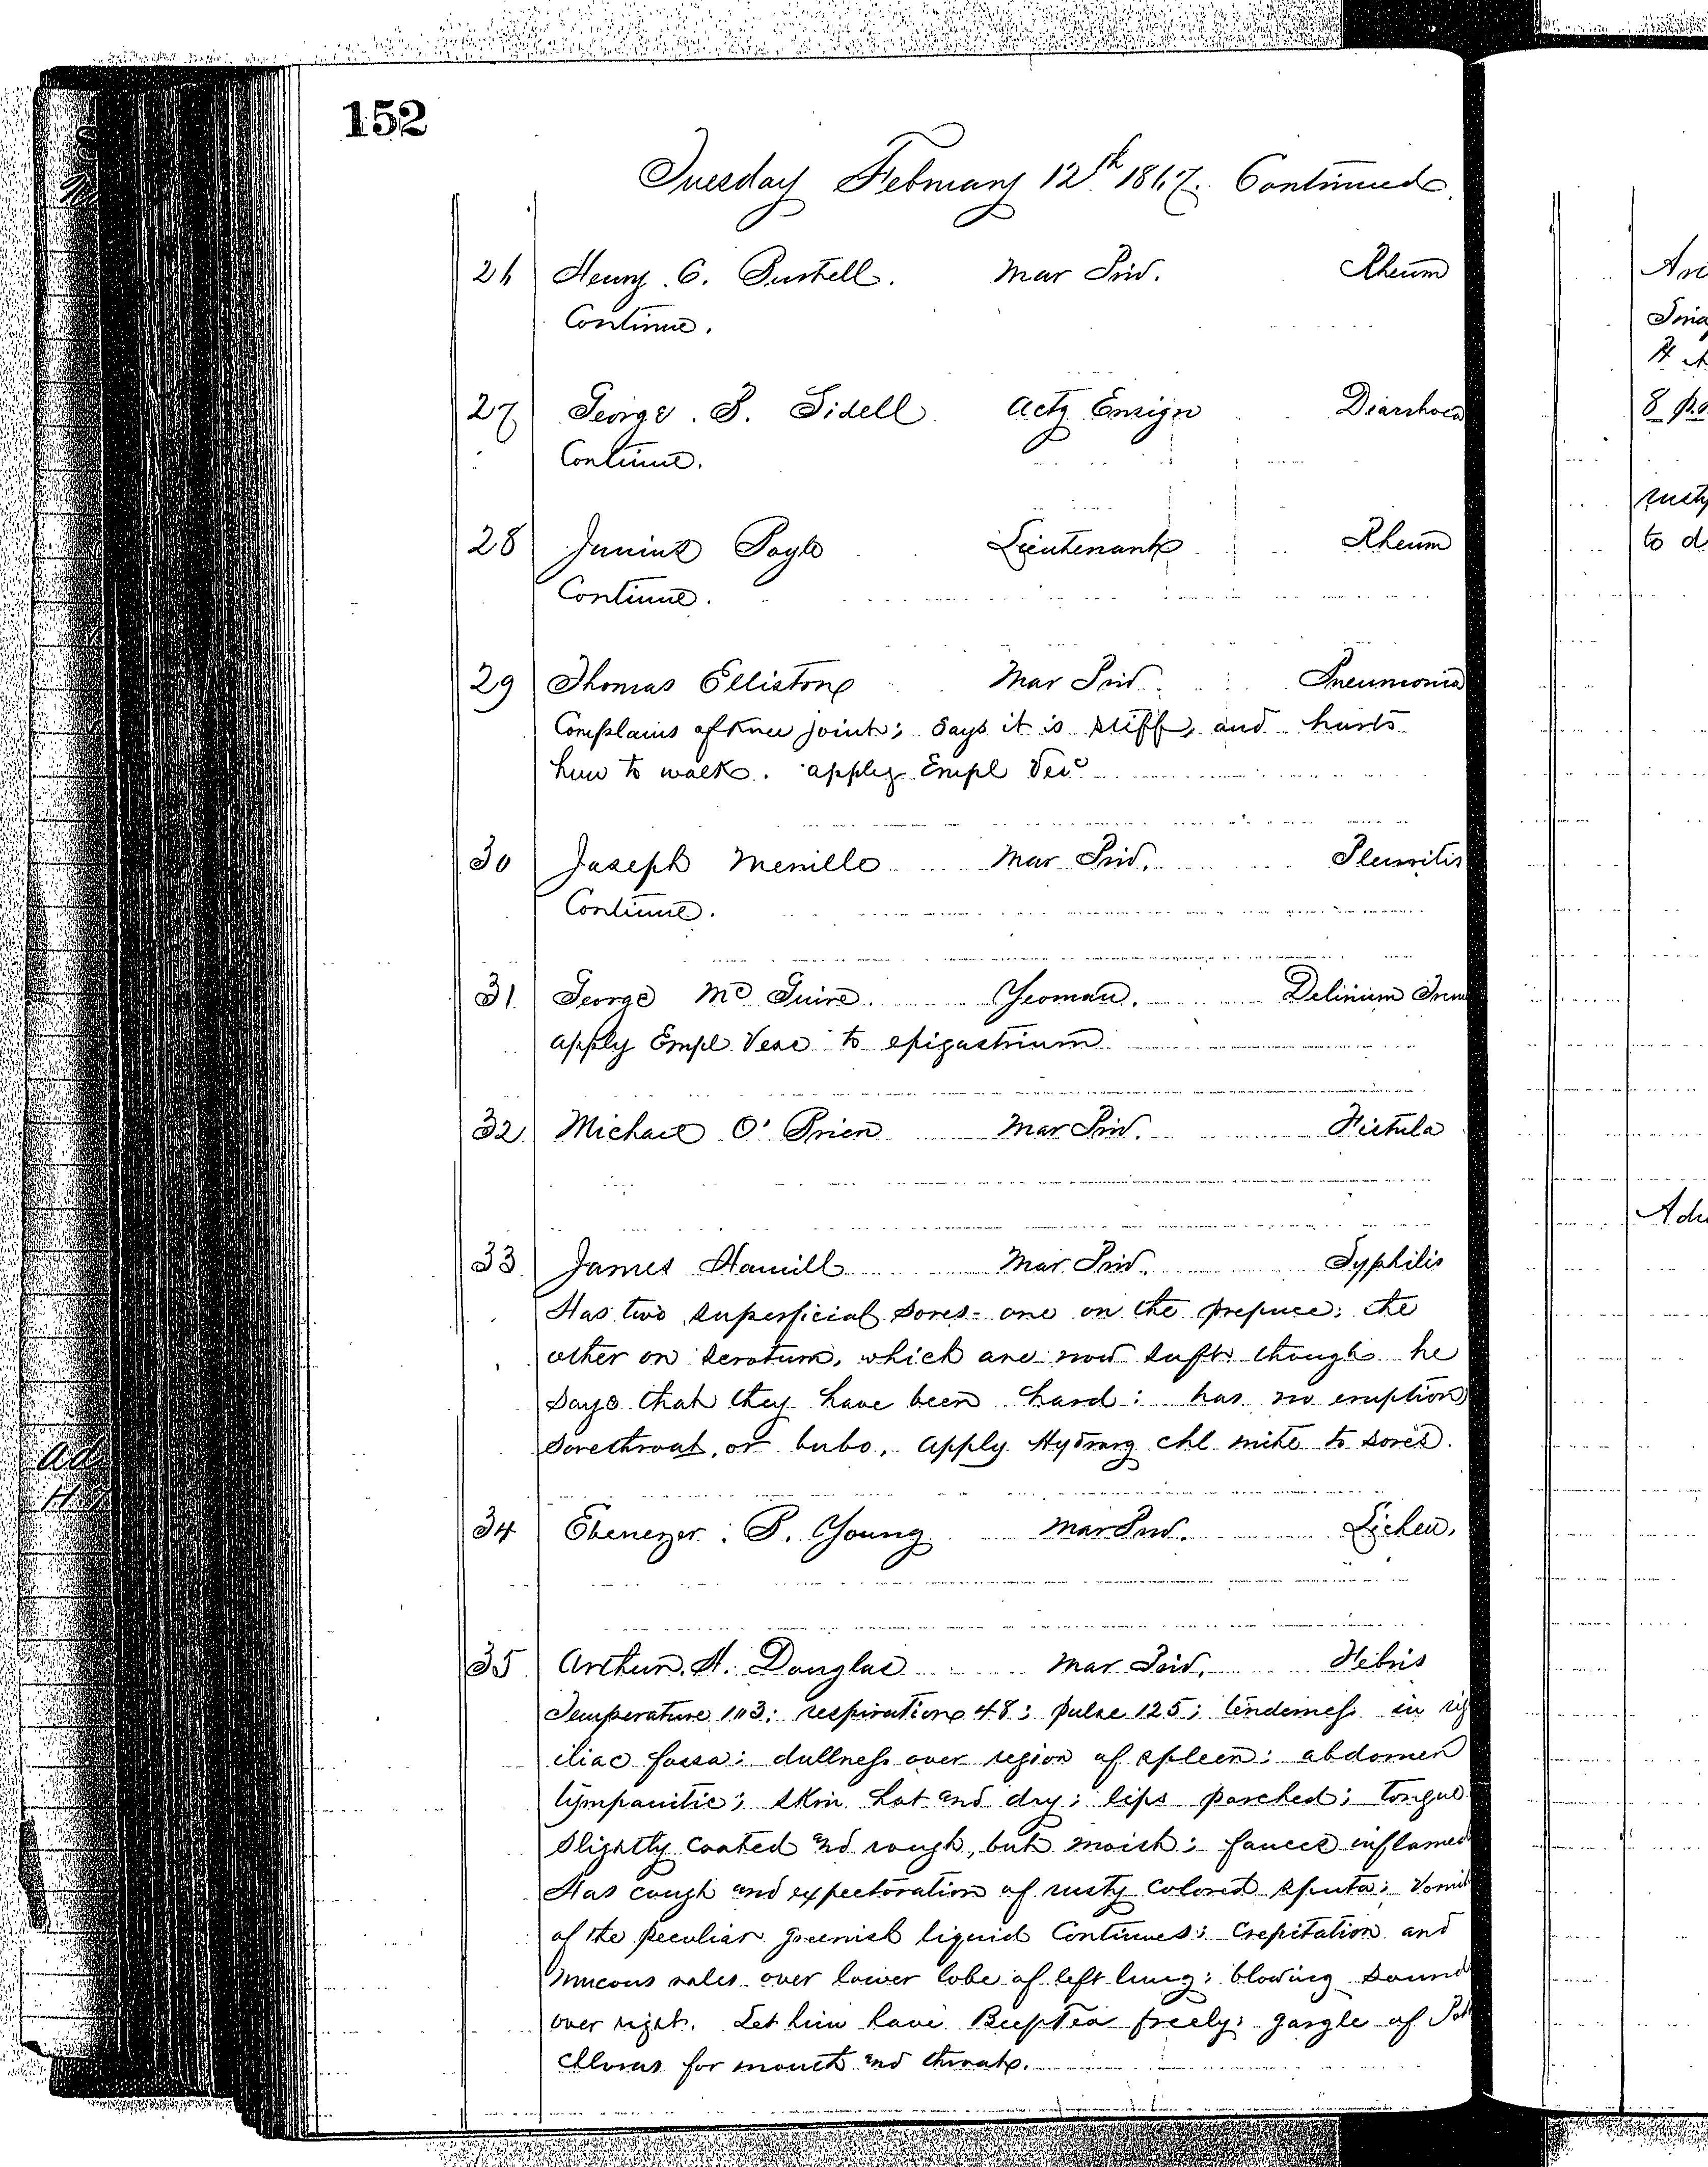 152
Tuesday February 12th 1867. Continued.
26 Henry C. Mar Priv. Rheum
Continue.
27 George S. Sidell Actg Ensign Diarrhoea
Continue.
28 Junius Boyle Lieutenant Rheum
Continue.
29 Thomas Elliston Mar Priv. Pneumonia
Complains of Knee joint; says it is stiff, and hurts
him to walk. apply Empl Vesc
30 Joseph Merrille Mar Priv. Pleuritis
Continue.
31 George McGuire. Yeoman. Delirium Trem
apply Empl Vesc to epigastrium
32 Michael O'Brien Mar Priv. Fistula
33 James Hamill Mar Priv. Syphilis
Has two superficial sores - one on the prepuce; the
other on scrotum, which are now soft though he
says that they have been hard: has no eruption
sorethroat, or bubo. apply Hydrarg chl mite to sores.
34 Ebenezer P. Young Mar Priv. Lichen.
35 Arthur H. Douglas Mar Priv. Febris
Temperature 103; respiration 48; pulse 125; tenderness in rig
iliac fossa; dullness over region of spleen; abdomen
tympanitic; skin hot and dry; lips parched; tongue
slightly coated and rough, but moist; fauces inflamed
Has cough and expectoration of rusty colored sputa; vomit
of the peculiar greenish liquid continues; crepitation and
mucous rales over lower lobe of left lung; blowing sound
over right. Let him have Beef Tea freely; gargle of Pot
Chloras for mouth and throat.
8 p.
to d